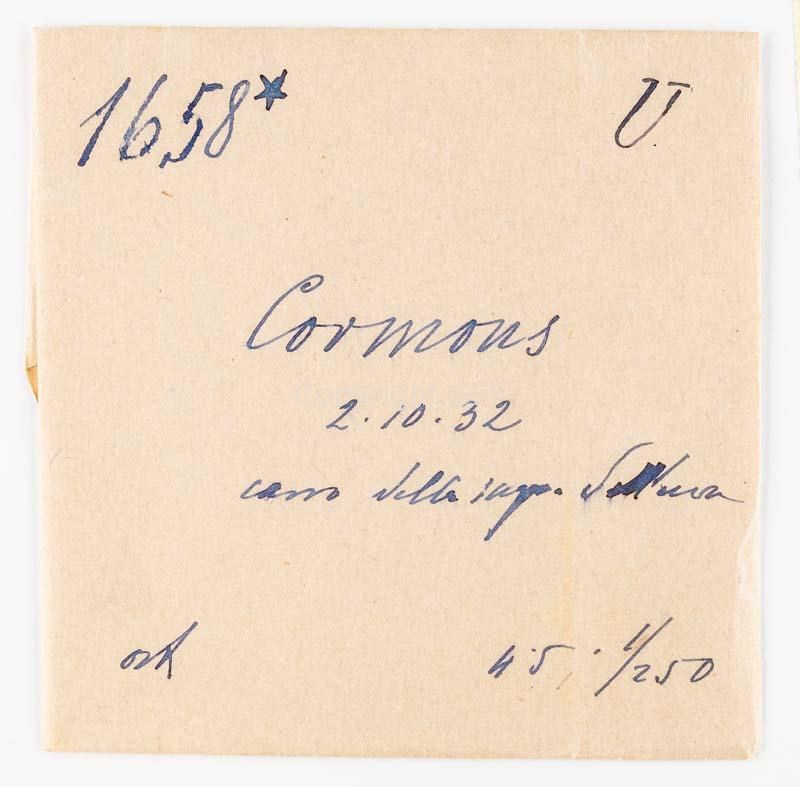 1658* U
Cormons
2.10.32
carro della sagra dell'uva
ort
4.5; 1/250